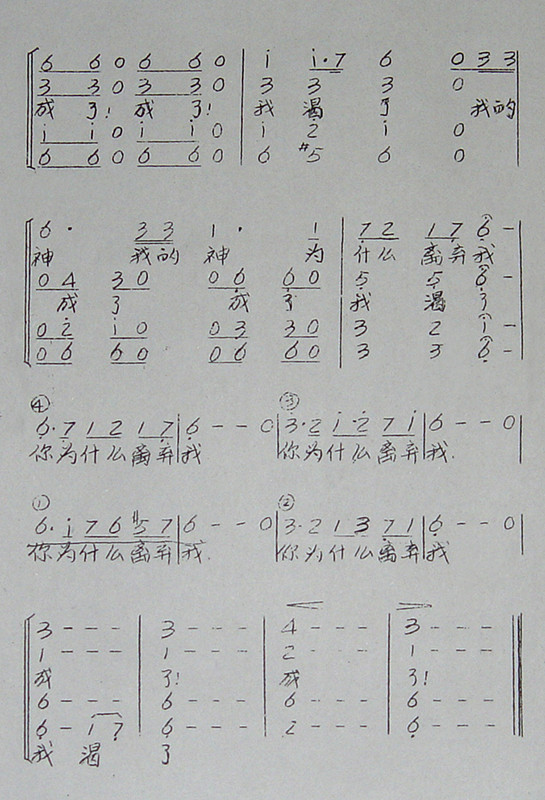 6 6 0 6 6 0 | i i·7 6 0 3 3
3 3 0 3 3 0 3 3 3 0
成 了! 成 了! 我 渴 了 我的
i i 0 i i 0 i 2 i 0
6 6 0 6 6 0 6 #5 6 0
6 · 3 3 1 · 1 | 7 2 1 7 6 -
神 我的 神 为 什么 离弃 我
0 4 3 0 0 6 6 0 5 5 6 -
成 了 成 了 我 渴 了
0 2 i 0 0 3 3 0 3 2 i -
0 6 6 0 0 6 6 0 3 3 6 -
④ ③
6·7 1 2 1 7 | 6 - - 0 | 3·2 i·2 7 i | 6 - - 0 |
你为什么离弃我 你为什么离弃我.
① ②
6·i 7 6 #5 7 | 6 - - 0 | 3·2 1 3 7 1 | 6 - - 0 |
你为什么离弃我. 你为什么离弃我
3 - - - | 3 - - - | 4 - - - | 3 - - -
1 - - - 1 - - - 2 - - - 1 - - -
成 了! 成 了!
6 - - - 6 - - - 6 - - - 6 - - -
6 - 1 7 6 - - - 2 - - - 6 - - -
我 渴 了